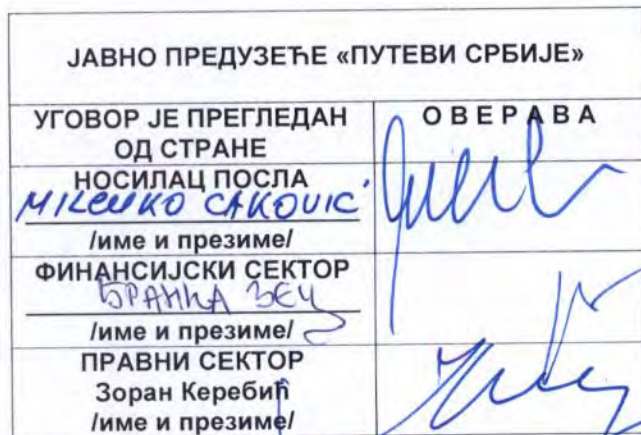 ЈАВНО ПРЕДУЗЕЋЕ «ПУТЕВИ СРБИЈЕ»
УГОВОР ЈЕ ПРЕГЛЕДАН
ОД СТРАНЕ
О В Е Р А В А
НОСИЛАЦ ПОСЛА
MILENKO CAKOVIĆ
/име и презиме/
ФИНАНСИЈСКИ СЕКТОР
БРАНКА ЗЕЦ
/име и презиме/
ПРАВНИ СЕКТОР
Зоран Керебић
/име и презиме/